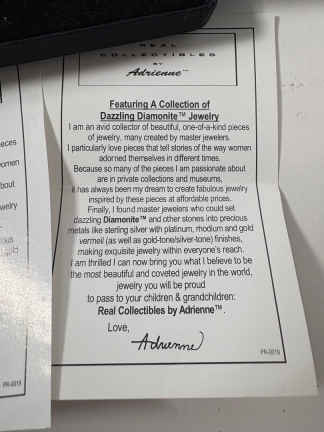 REAL
COLLECTIBLES
BY
Adrienne™
Featuring A Collection of
Dazzling Diamonite™ Jewelry
I am an avid collector of beautiful, one-of-a-kind pieces
of jewelry, many created by master jewelers.
I particularly love pieces that tell stories of the way women
adorned themselves in different times.
Because so many of the pieces I am passionate about
are in private collections and museums,
it has always been my dream to create fabulous jewelry
inspired by these pieces at affordable prices.
Finally, I found master jewelers who could set
dazzling Diamonite™ and other stones into precious
metals like sterling silver with platinum, rhodium and gold
vermeil (as well as gold-tone/silver-tone) finishes,
making exquisite jewelry within everyone's reach.
I am thrilled I can now bring you what I believe to be
the most beautiful and coveted jewelry in the world,
jewelry you will be proud
to pass to your children & grandchildren:
Real Collectibles by Adrienne™.
Love,
Adrienne
PK-0019
eces
omen
bout
welry
PK-0019